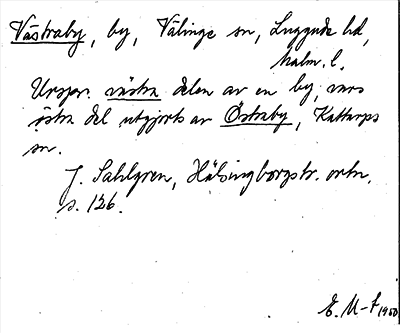 Västraby, by, Välinge sn, Luggude hd,
Malm. l.
Urspr. västra delen av en by, vars
östra del utgjorts av Östraby, Kattarps
sn.
J. Sahlgren, Hälsingborgstr. ortn.
s. 126.
E. M-f 1950